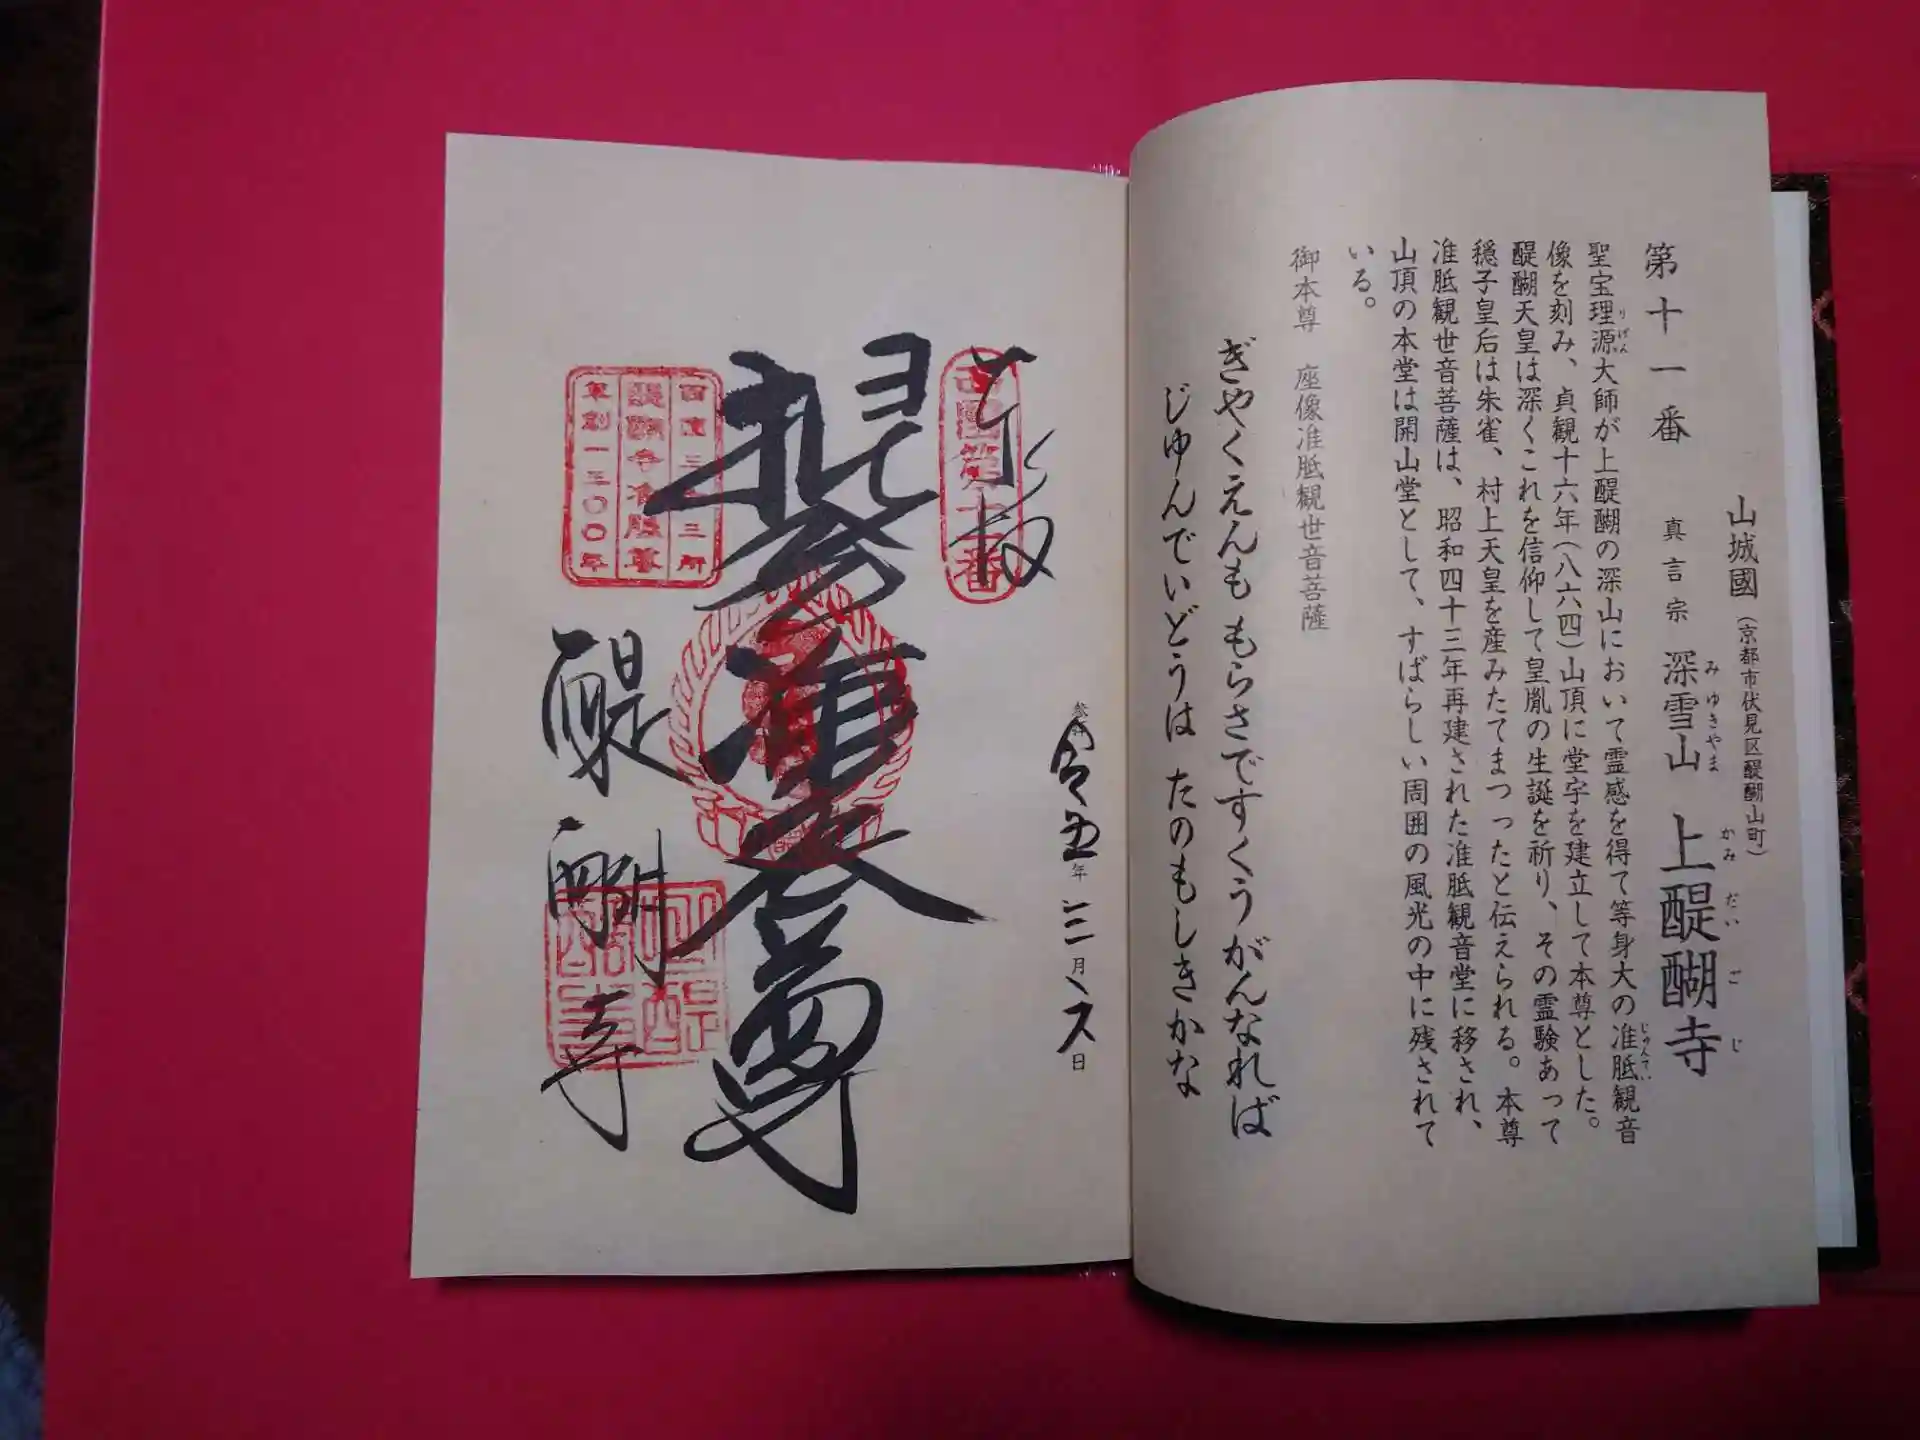 山城國(京都市伏見区醍醐山町)
第十一番 真言宗 深雪山 上醍醐寺
みゆきやま かみだいごじ
聖宝理源大師が上醍醐の深山において霊感を得て等身大の准胝観音
りげん じゅんてい
像を刻み、貞観十六年(八六四)山頂に堂宇を建立して本尊とした。
醍醐天皇は深くこれを信仰して皇胤の生誕を祈り、その霊験あって
穏子皇后は朱雀、村上天皇を産みたてまつったと伝えられる。本尊
准胝観世音菩薩は、昭和四十三年再建された准胝観音堂に移され、
山頂の本堂は開山堂として、すばらしい周囲の風光の中に残されて
いる。
御本尊 座像准胝観世音菩薩
ぎやくえんも もらさですくうがんなれば
じゅんでいどうは たのもしきかな
参拝 令五年 三月 日
西國第十一番
准胝尊
西国三十三所
醍醐寺准胝尊
草創一三〇〇年
醍醐寺